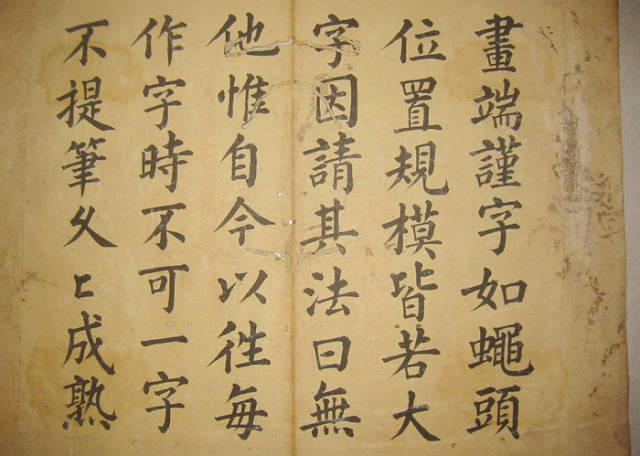 畫端謹字如蠅頭
位置規模皆若大
字因請其法曰無
他惟自今以徃每
作字時不可一字
不提筆久〻成熟